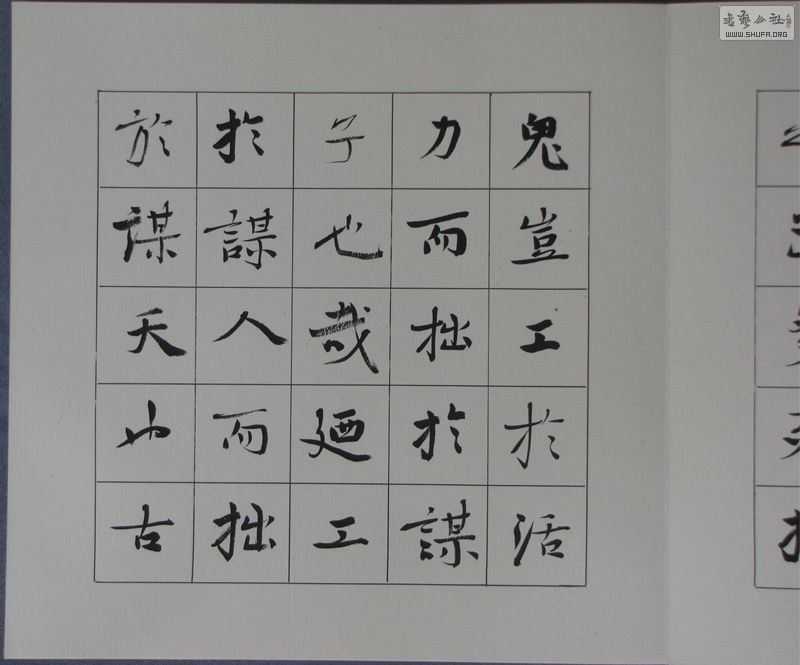 鬼豈工於活
力而拙於謀
子也哉廼工
於謀人而拙
於謀天也古
書藝公社
WWW.SHUFA.ORG